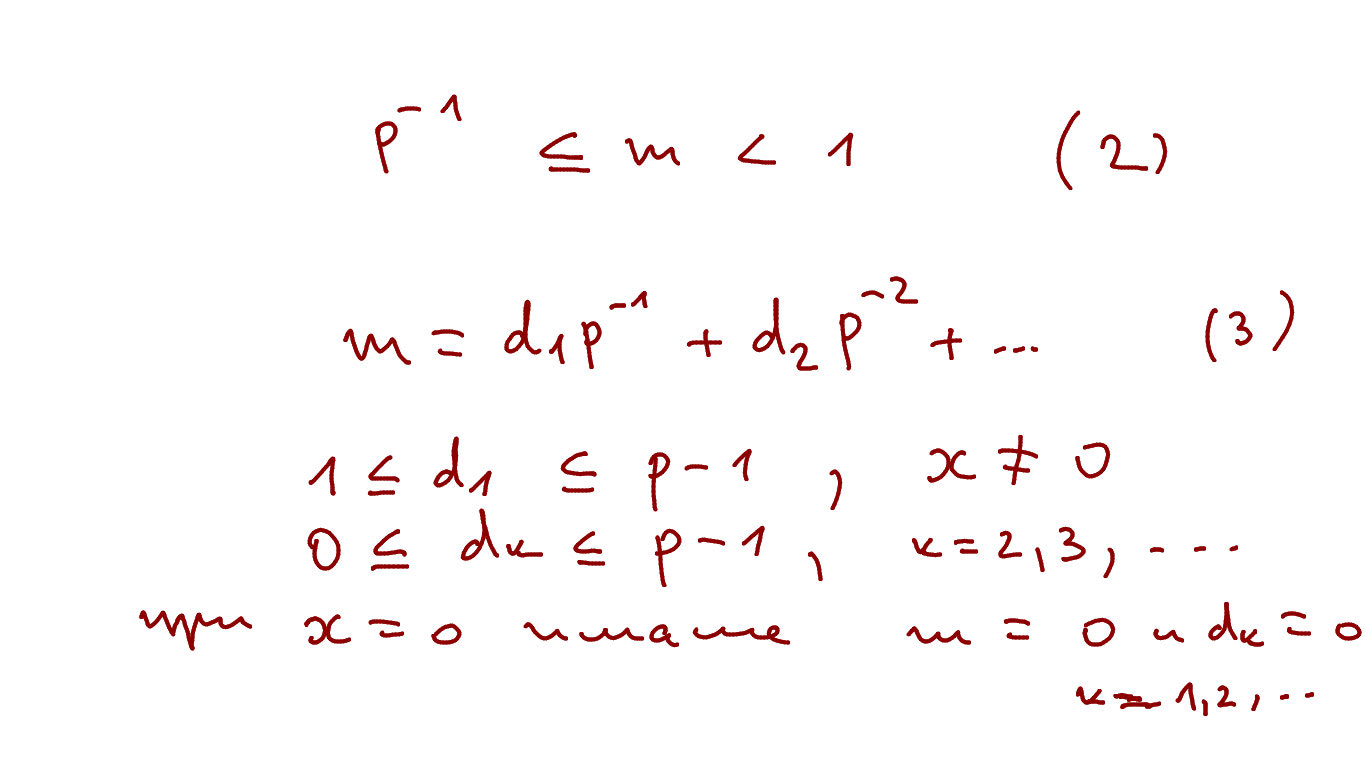 p⁻¹ ≤ m < 1 (2)
m = d₁p⁻¹ + d₂p⁻² + ... (3)
1 ≤ d₁ ≤ p-1 , x ≠ 0
0 ≤ dₖ ≤ p-1 , k=2,3, ....
при x = 0 имаме m = 0 и dₖ = 0
k = 1,2, ...